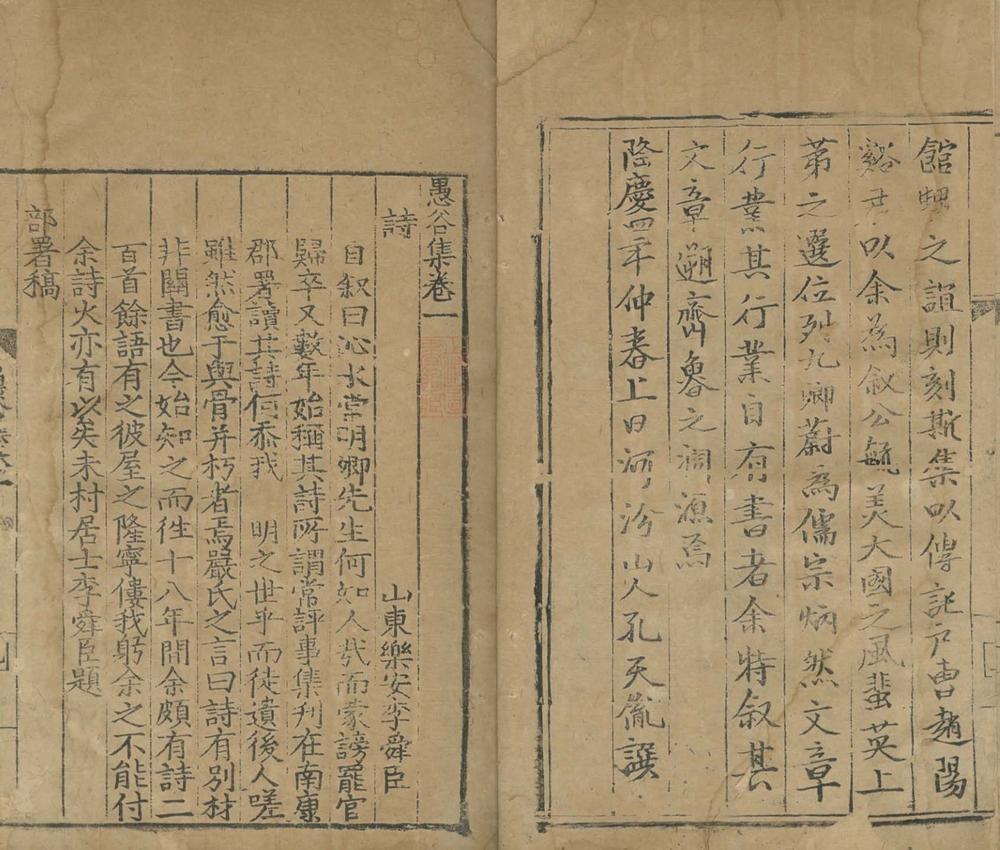 館甥之誼則刻斯集以傳託戶曹趙陽
谿君以余為敘公毓美大國之風蜚英上
第之選位列九卿蔚為儒宗炳然文章
行業其行業自有書者余特敘其
文章遡齊魯之淵源焉
隆慶四年仲春上日河汾山人孔天胤譔
愚谷集卷一
山東樂安李舜臣
詩
自敘曰沁水常明卿先生何如人哉而蒙謗罷官
歸卒又數年始稱其詩所謂常評事集刊在南康
郡署讀其詩何忝我 明之世乎而徒遺後人嗟
雖然愈于與骨并朽者焉嚴氏之言曰詩有別材
非關書也今始知之而徃十八年間余頗有詩二
百首餘語有之彼屋之隆寧僂我躬余之不能付
余詩火亦有以矣未村居士李舜臣題
部署稿